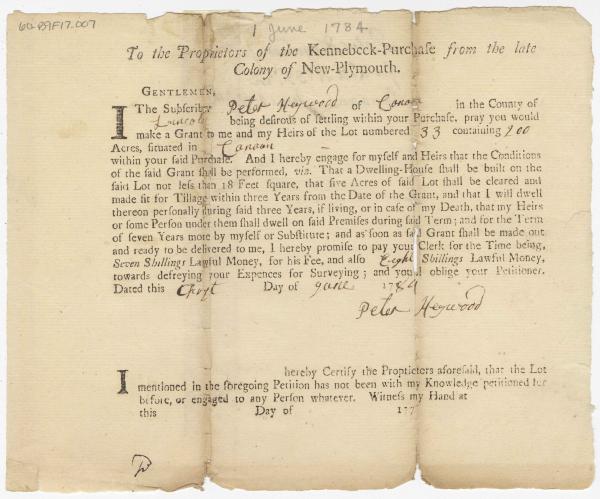 60-89F17.007
1 June 1784
To the Proprietors of the Kennebeck-Purchase from the late
Colony of New-Plymouth.
GENTLEMEN,
I The Subscriber Peter Heywood of Canaan in the County of
Lincoln being desirous of settling within your Purchase, pray you would
make a Grant to me and my Heirs of the Lot numbered 33 containing 200
Acres, situated in Canaan
within your said Purchase. And I hereby engage for myself and Heirs that the Conditions
of the said Grant shall be performed, viz. That a Dwelling-House shall be built on the
said Lot not less than 18 Feet square, that five Acres of said Lot shall be cleared and
made fit for Tillage within three Years from the Date of the Grant, and that I will dwell
thereon personally during said three Years, if living, or in case of my Death, that my Heirs
or some Person under them shall dwell on said Premises during said Term; and for the Term
of seven Years more by myself or Substitute; and as soon as said Grant shall be made out
and ready to be delivered to me, I hereby promise to pay your Clerk for the Time being,
Seven Shillings Lawful Money, for his Fee, and also Eight Shillings Lawful Money,
towards defreying your Expences for Surveying; and you'l oblige your Petitioner.
Dated this Day of June 1784
Peter Heywood
I hereby Certify the Proprietors aforesaid, that the Lot
mentioned in the foregoing Petition has not been with my Knowledge petitioned for
before, or engaged to any Person whatever. Witness my Hand at
this Day of 177